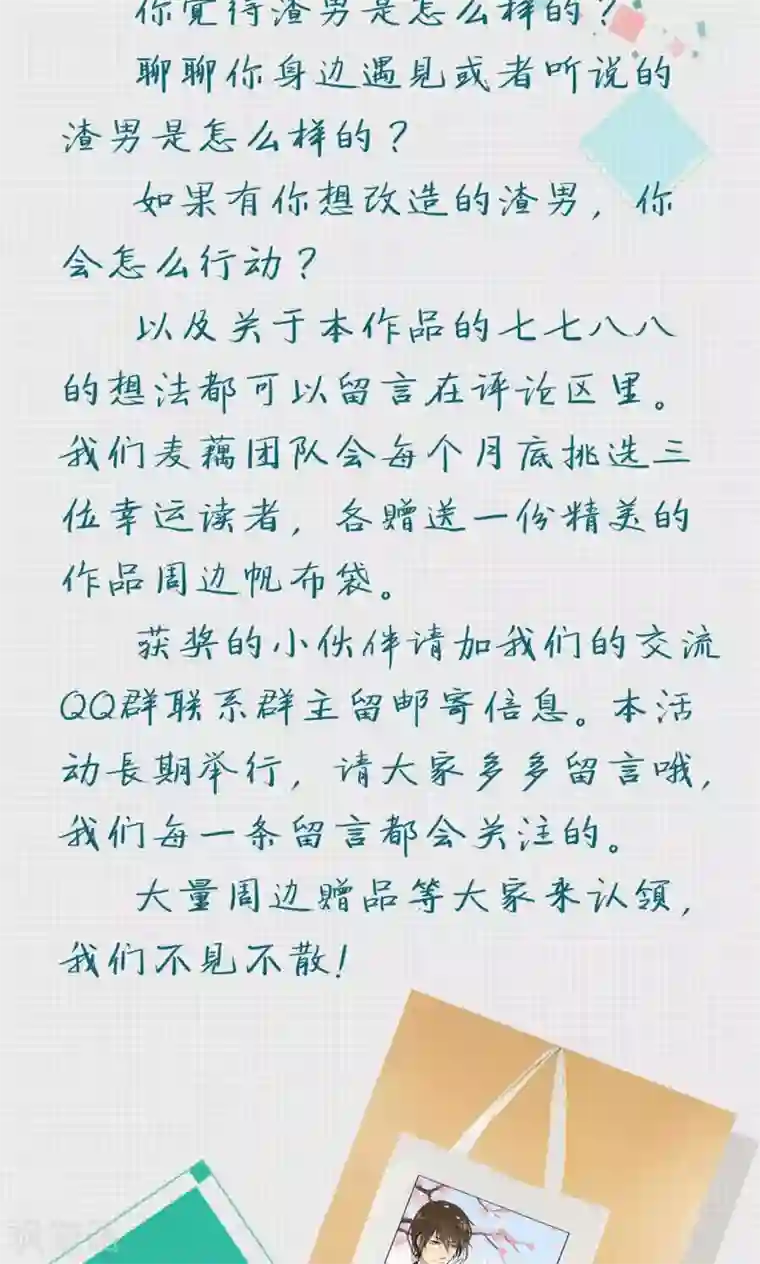 你觉得渣男是怎么样的？
聊聊你身边遇见或者听说的
渣男是怎么样的？
如果有你想改造的渣男，你
会怎么行动？
以及关于本作品的七七八八
的想法都可以留言在评论区里。
我们麦藕团队会每个月底挑选三
位幸运读者，各赠送一份精美的
作品周边帆布袋。
获奖的小伙伴请加我们的交流
QQ群联系群主留邮寄信息。本活
动長期举行，请大家多多留言哦，
我们每一条留言都会关注的。
大量周边赠品等大家来认领，
我们不见不散！